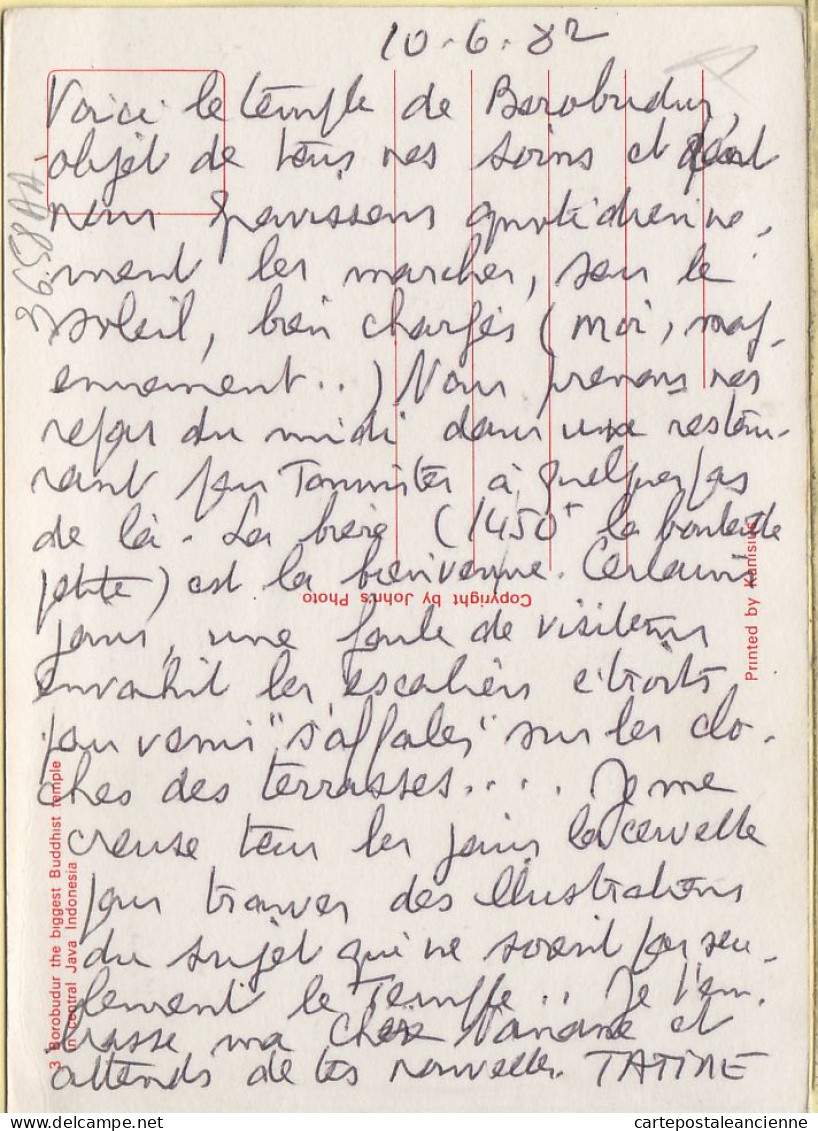 10.6.82
Voici le temple de Borobudur,
objet de tous nos soins et dont
nous gravissons quotidienne-
ment les marches, sous le
soleil, bien chargés (moi, moy-
ennement..) Nous prenons nos
repas du midi dans une restau-
rant pour Touristes à quelques pas
de là. La bière (1450+ la bouteille
petite) est la bienvenue. Certains
jours, une foule de visiteurs
envahit les escaliers étroits
pour venir "s'affaler" sur les clo-
ches des terrasses.... Je me
creuse tous les jours la cervelle
pour trouver des illustrations
du sujet qui ne soient pas seu-
lement le Temple.. Je t'em-
brasse ma chère et
attends de tes nouvelles. TATINE
3658AA
Copyright by John's Photo
Printed by Kanisius
3 Borobudur the biggest Buddhist temple
in central Java Indonesia
cartepostaleancienne